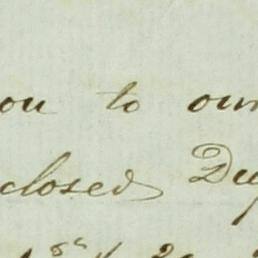 ou to our
closed Dup